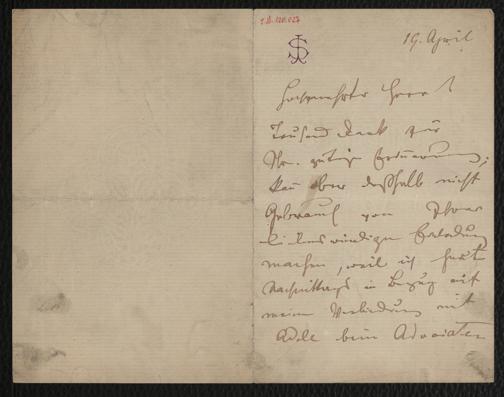 19. April
Hochgeehrter Herr!
Tausend Dank für
Ihre gütige Erinnerung;
kann aber deßhalb nicht
Gebrauch von Ihrer
liebenswürdigen Einladung
machen, weil ich heute
Nachmittags in Bezug auf
meine Verbindung mit
Adele beim Advocaten